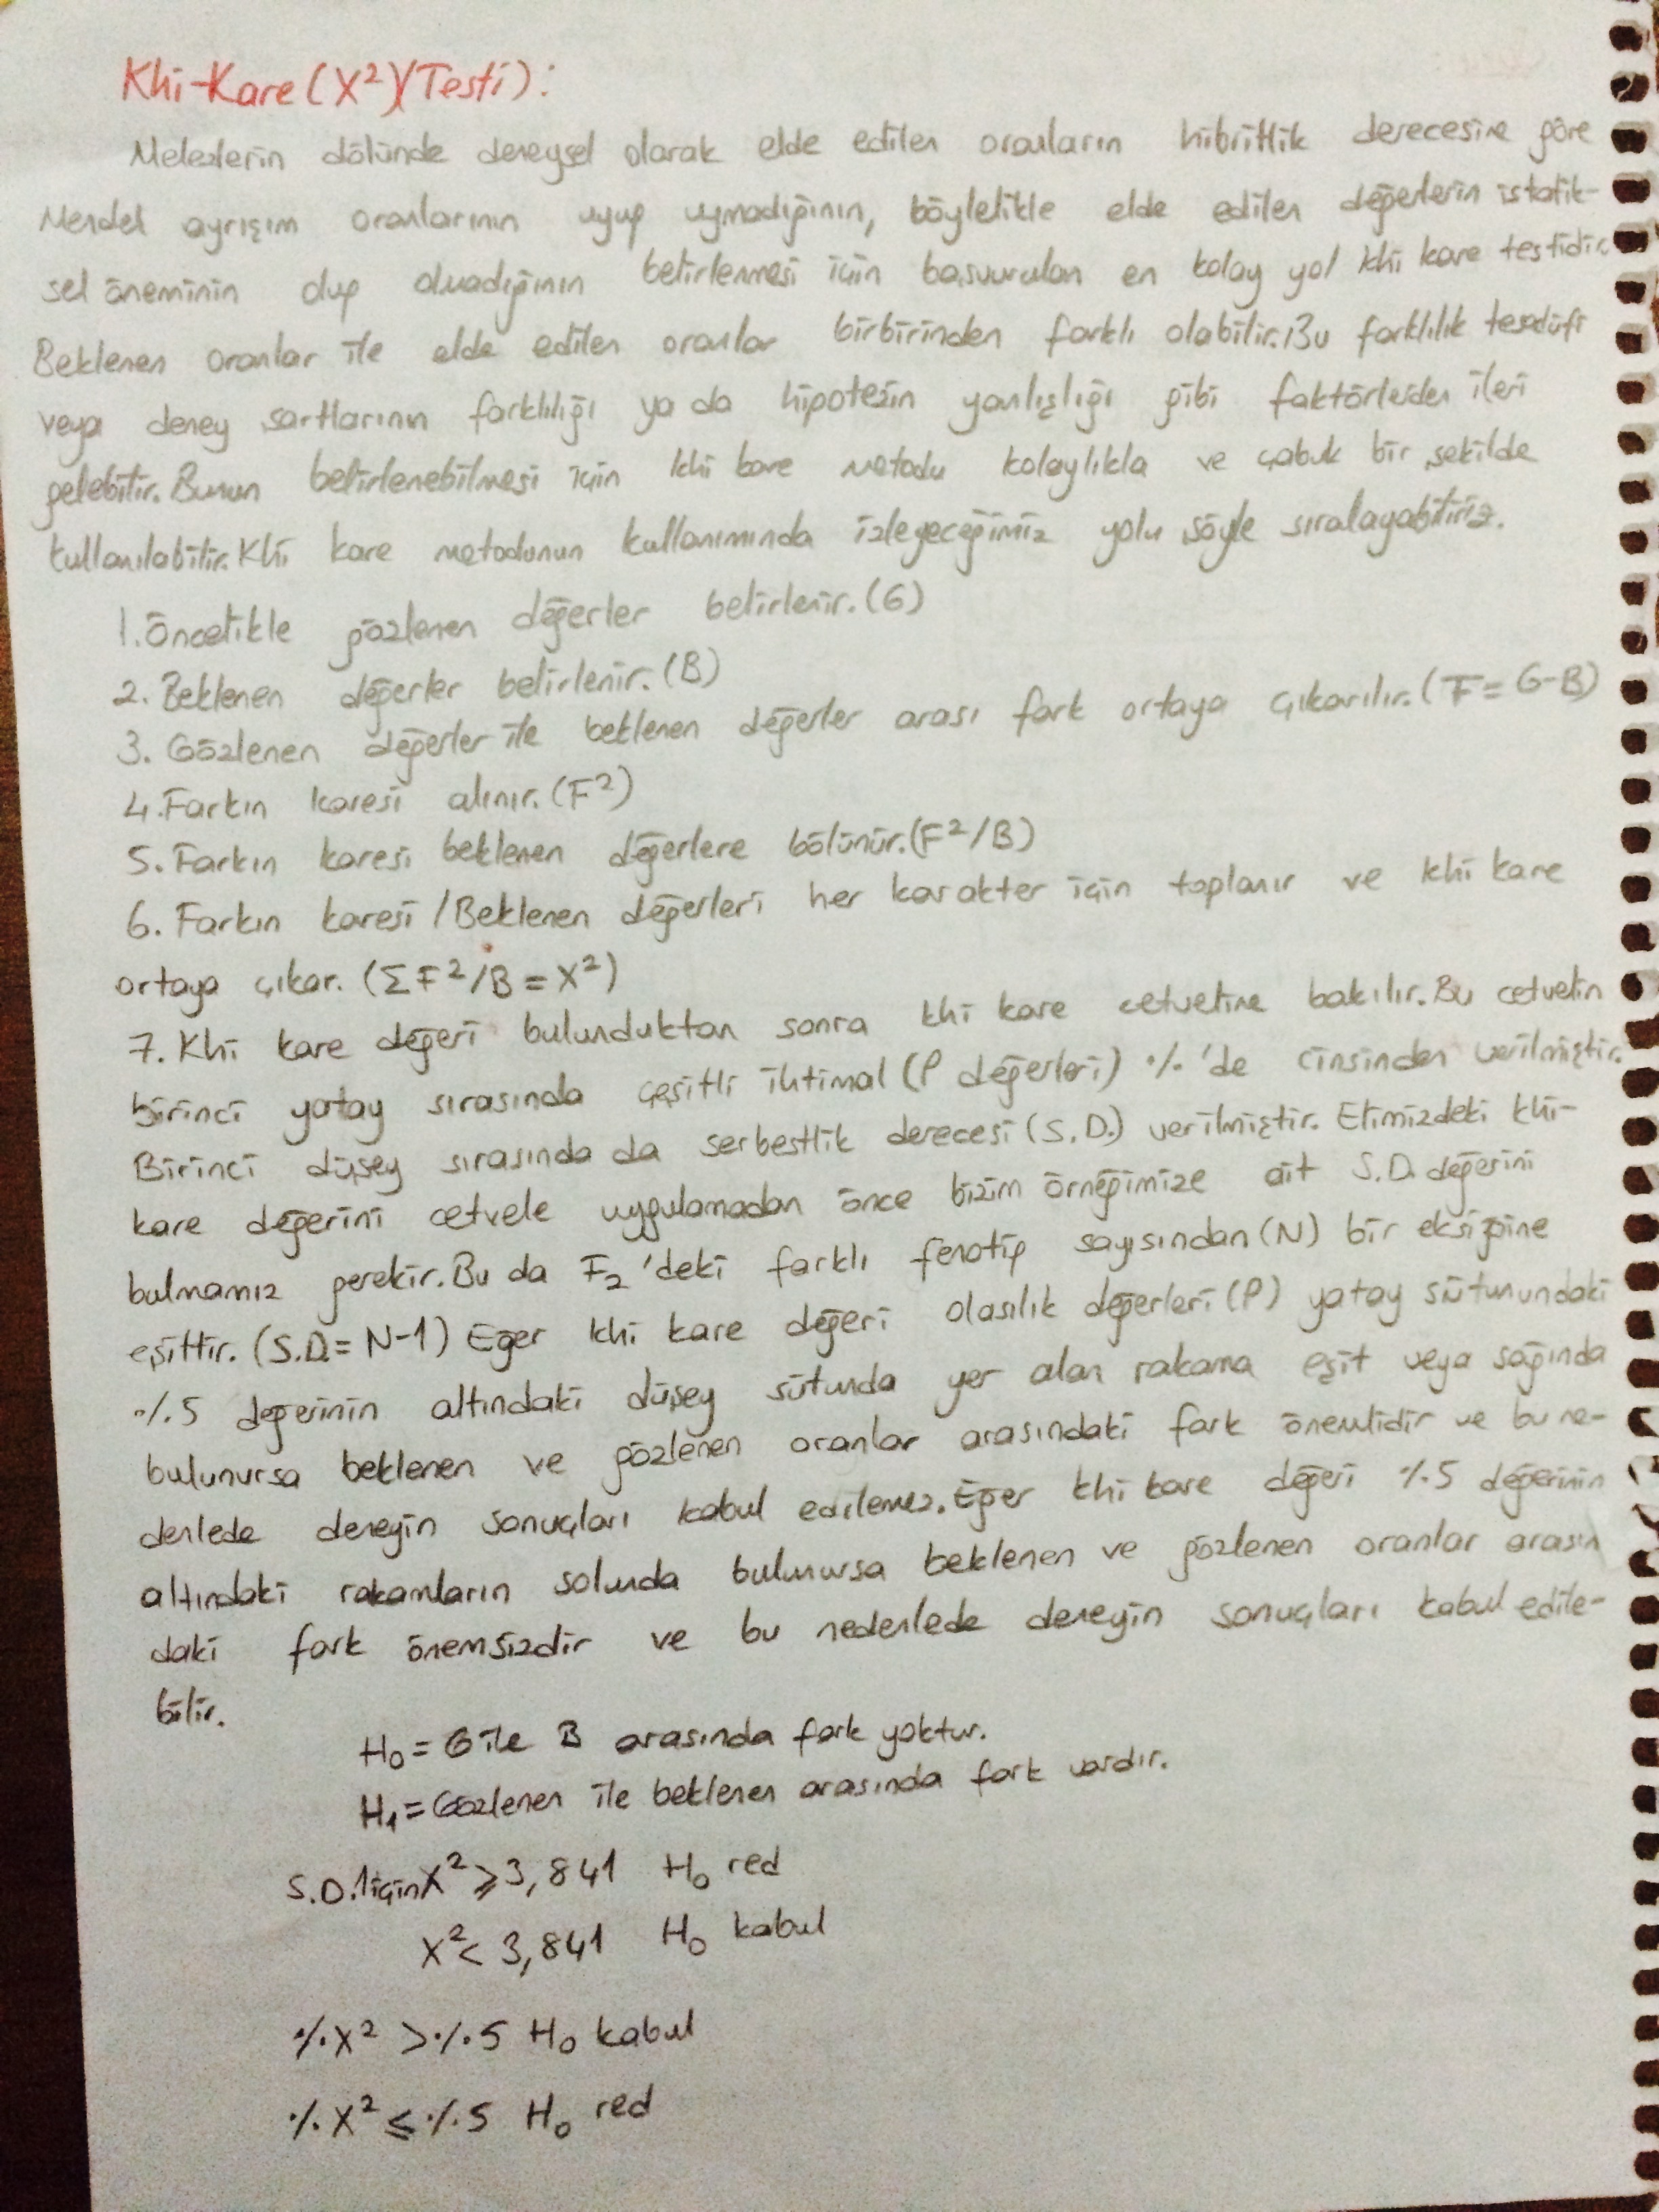 Khi-Kare (X²)(Testi):
Melezlerin dölünde deneysel olarak elde edilen oranların hibritlik derecesine göre
Mendel ayrışım oranlarının uyup uymadığının, böylelikle elde edilen değerlerin istatik-
sel öneminin olup olmadığının belirlenmesi için başvurulan en kolay yol khi kare testidir.
Beklenen oranlar ile elde edilen oranlar birbirinden farklı olabilir. Bu farklılık tesadüfi
veya deney şartlarının farklılığı ya da hipotezin yanlışlığı gibi faktörlerden ileri
gelebilir. Bunun belirlenebilmesi için khi kare metodu kolaylıkla ve çabuk bir şekilde
kullanılabilir. Khi kare metodunun kullanımında izleyeceğimiz yolu şöyle sıralayabiliriz.
1. Öncelikle gözlenen değerler belirlenir. (G)
2. Beklenen değerler belirlenir. (B)
3. Gözlenen değerler ile beklenen değerler arası fark ortaya çıkarılır. (F = G-B)
4. Farkın karesi alınır. (F²)
5. Farkın karesi beklenen değerlere bölünür. (F²/B)
6. Farkın karesi / Beklenen değerleri her karakter için toplanır ve khi kare
ortaya çıkar. (Σ F²/B = X²)
7. Khi kare değeri bulunduktan sonra khi kare cetveline bakılır. Bu cetvelin
birinci yatay sırasında çeşitli ihtimal (P değerleri) %'de cinsinden verilmiştir.
Birinci düşey sırasında da serbestlik derecesi (S.D.) verilmiştir. Elimizdeki khi-
kare değerini cetvele uygulamadan önce bizim örneğimize ait S.D. değerini
bulmamız gerekir. Bu da F₂'deki farklı fenotip sayısından (N) bir eksiğine
eşittir. (S.D. = N-1) Eğer khi kare değeri olasılık değerleri (P) yatay sütunundaki
%5 değerinin altındaki düşey sütunda yer alan rakama eşit veya sağında
bulunursa beklenen ve gözlenen oranlar arasındaki fark önemlidir ve bu ne-
denlede deneyin sonuçları kabul edilemez. Eğer khi kare değeri %5 değerinin
altındaki rakamların solunda bulunursa beklenen ve gözlenen oranlar arasın
daki fark önemsizdir ve bu nedenlede deneyin sonuçları kabul edile-
bilir.
H₀ = G ile B arasında fark yoktur.
H₁ = Gözlenen ile beklenen arasında fark vardır.
S.D.1 için X² ≥ 3,841 H₀ red
X² < 3,841 H₀ kabul
%X² > %5 H₀ kabul
%X² ≤ %5 H₀ red